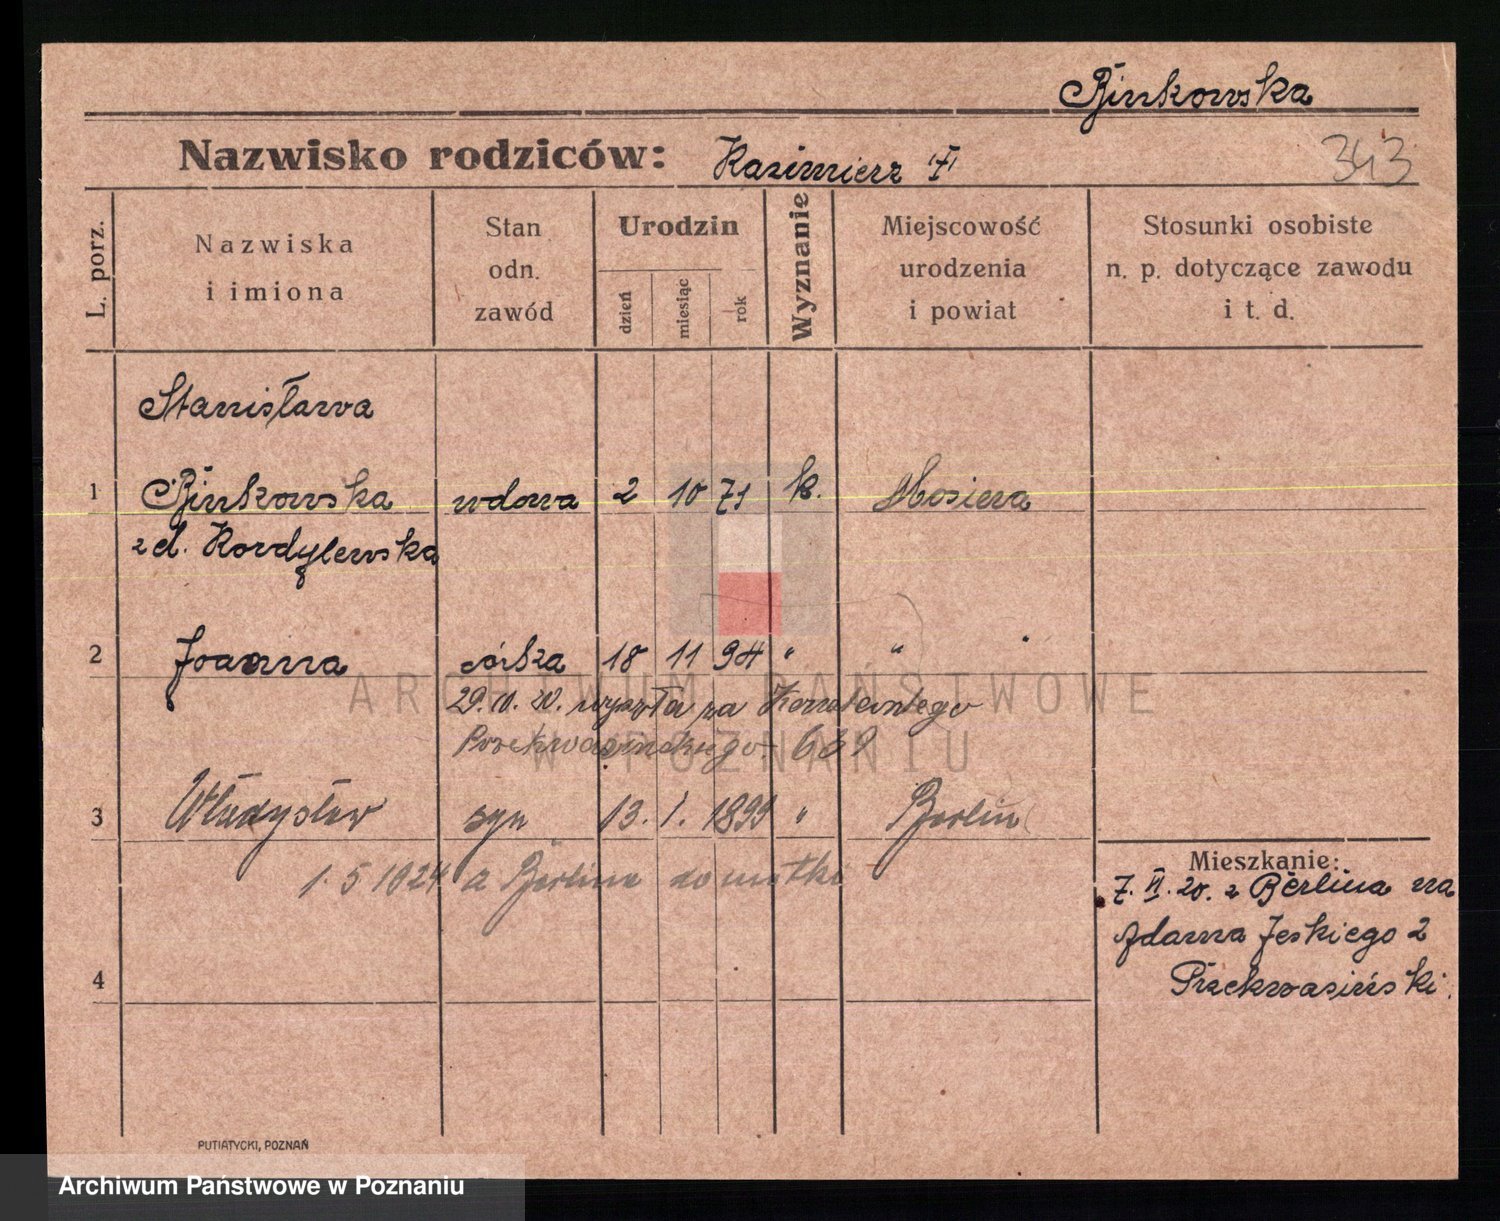 Binkowska
Nazwisko rodziców: Kazimierz
343
L. porz.
Nazwiska
i imiona
Stan
odn.
zawód
Urodzin
dzień
miesiąc
rok
Wyznanie
Miejscowość
urodzenia
i powiat
Stosunki osobiste
n. p. dotyczące zawodu
i t. d.
Stanisława
1 Binkowska wdowa 2 10 71 k. Mosina
z d. Kordylewska
2 Joanna córka 18 11 94 " "
wyszła za
Przekwasińskiego
3 Władysław syn 13. 1. 1899 " Berlin
1. 5. 1924 z Berlina do matki
Mieszkanie:
7. VI. 20. z Berlina na
Adama Jeskiego 2
Przekwasiński.
4
PUTIATYCKI, POZNAŃ
ARCHIWUM PAŃSTWOWE
W POZNANIU
Archiwum Państwowe w Poznaniu